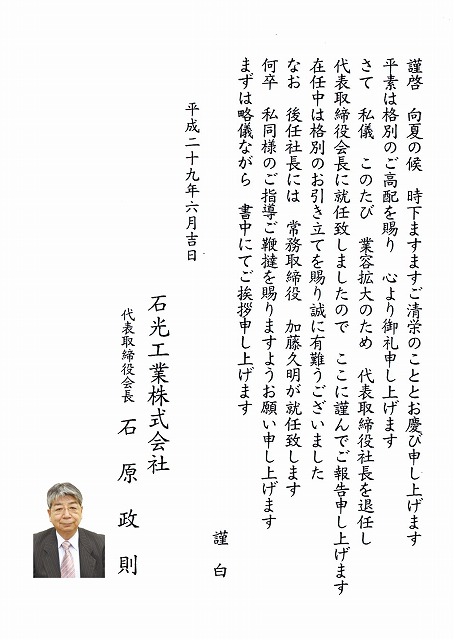 謹啓　向夏の候　時下ますますご清栄のこととお慶び申し上げます
平素は格別のご高配を賜り　心より御礼申し上げます
さて　私儀　このたび　業容拡大のため　代表取締役社長を退任し
代表取締役会長に就任致しましたので　ここに謹んでご報告申し上げます
在任中は格別のお引き立てを賜り誠に有難うございました
なお　後任社長には　常務取締役　加藤久明が就任致します
何卒　私同様のご指導ご鞭撻を賜りますようお願い申し上げます
まずは略儀ながら　書中にてご挨拶申し上げます
謹白
平成二十九年六月吉日
石光工業株式会社
代表取締役会長　石原政則